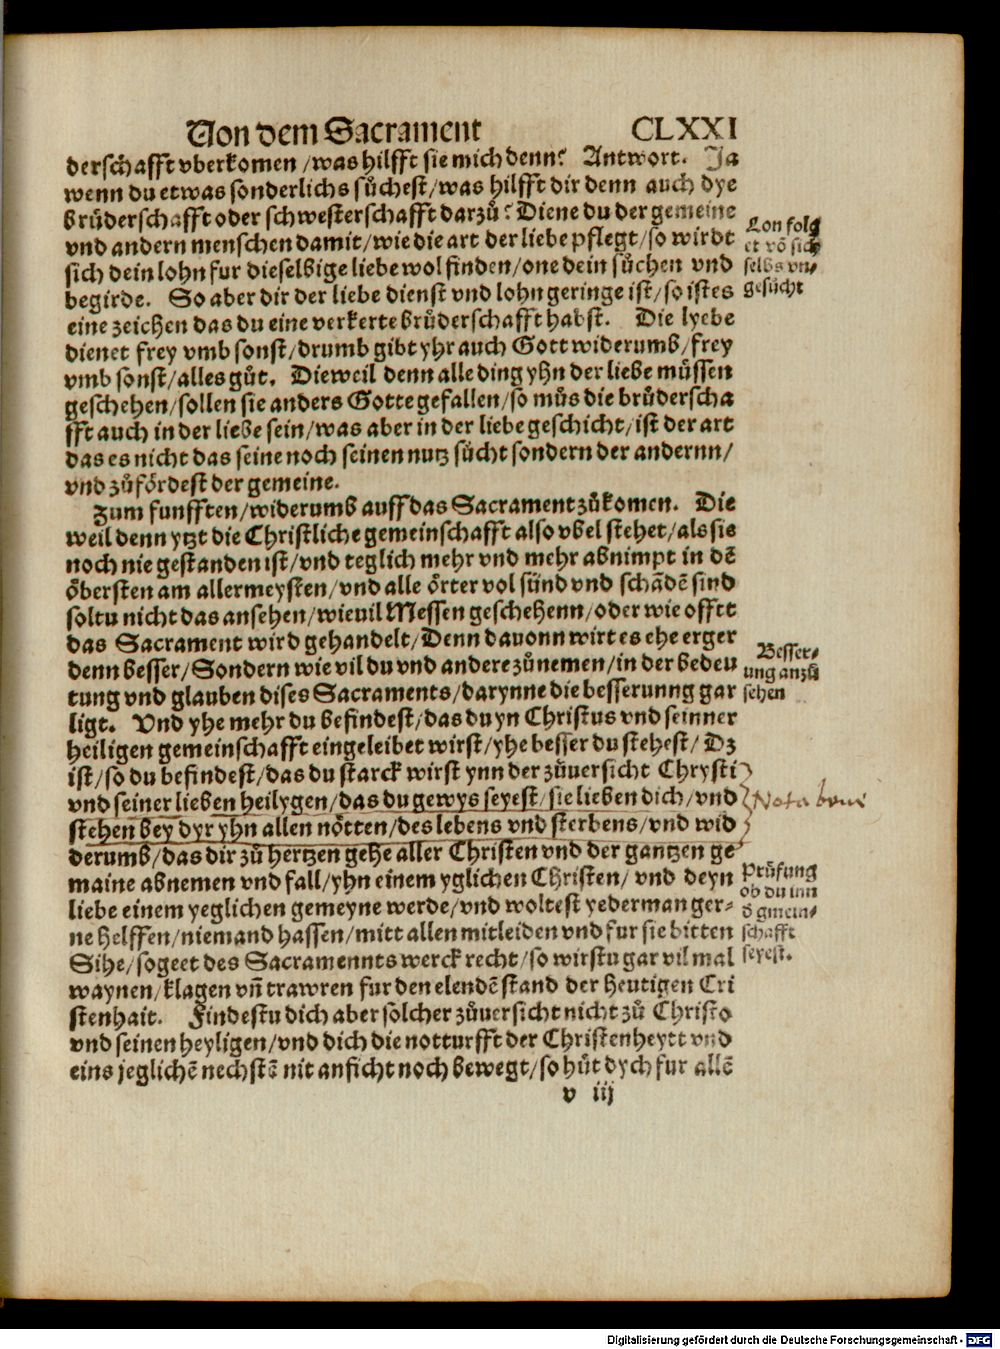 Von dem Sacrament CLXXI
derschafft vberkomen/was hilfft sie mich denn? Antwort. Ja
wenn du etwas sonderlichs sůchest/was hilfft dir denn auch dye
brůderschafft oder schwesterschafft darzů? Diene du der gemeine
vnd andern menschen damit/wie die art der liebe pflegt/so wirdt
sich dein lohn fur dieselbige liebe wol finden/one dein sůchen vnd
begirde. So aber dir der liebe dienst vnd lohn geringe ist/so ist es
eine zeichen das du eine verkerte brůderschafft habst. Die lyebe
dienet frey vmb sonst/drumb gibt yhr auch Gott widerumb/frey
vmb sonst/alles gůt. Dieweil denn alle ding yhn der liebe můssen
geschehen/sollen sie anders Gotte gefallen/so můs die brůderscha
fft auch in der liebe sein/was aber in der liebe geschicht/ist der art
das es nicht das seine noch seinen nutz sůcht sondern der andernn/
vnd zůfördest der gemeine.
Zum funfften/widerumb auff das Sacrament zůkomen. Die
weil denn ytzt die Christliche gemeinschafft also vbel stehet/als sie
noch nie gestanden ist/vnd teglich mehr vnd mehr abnimpt in dē
öbersten am allermeysten/vnd alle örter vol sünd vnd schādē sind
soltu nicht das ansehen/wieuil Messen geschehenn/oder wie offtt
das Sacrament wird gehandelt/Denn dauonn wirt es ehe erger
denn besser/Sondern wie vil du vnd andere zůnemen/in der bedeu
tung vnd glauben dises Sacraments/darynne die besserunng gar
ligt. Vnd yhe mehr du befindest/das du yn Christus vnd seinner
heiligen gemeinschafft eingeleibet wirst/yhe besser du stehest/Dz
ist/so du befindest/das du starck wirst ynn der zůuersicht Chrysti
vnd seiner lieben heilygen/das du gewys seyest/sie lieben dich/vnd
stehen bey dyr yhn allen nötten/des lebens vnd sterbens/vnd wid
derumb/das dir zů hertzen gehe aller Christen vnd der gantzen ge
maine abnemen vnd fall/yhn einem yglichen Christen/ vnd deyn
liebe einem yeglichen gemeyne werde/vnd woltest yederman ger-
ne helffen/niemand hassen/mitt allen mitleiden vnd fur sie bitten
Sihe/so geet des Sacramennts werck recht/so wirstu gar vil mal
waynen/klagen vn̄ trawren fur den elendē stand der heutigen Cri
stenhait. Findestu dich aber solcher zůuersicht nicht zů Christo
vnd seinen heyligen/vnd dich die notturfft der Christenheytt vnd
eins jeglichē nechstē nit anficht noch bewegt/so hůt dych fur allē
v iij
Lon folg
et vō sich
selbs vn-
gesücht
Besser-
ung anzů
sehen
Nota bene
Prüfung
ob du inn
d gmein-
schafft
seyest.
Digitalisierung gefördert durch die Deutsche Forschungsgemeinschaft - DFG